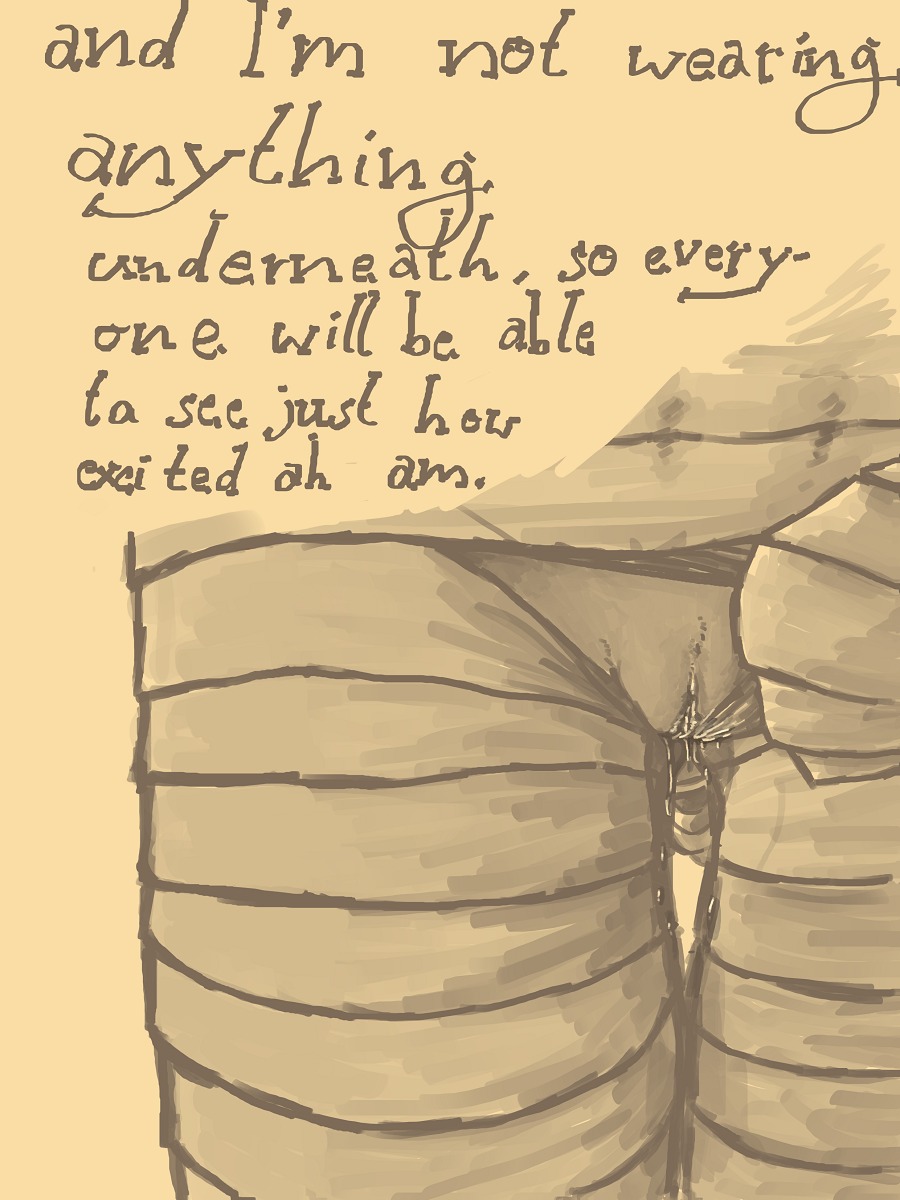 and I'm not wearing
anything
underneath, so every-
one will be able
to see just how
excited ah am.